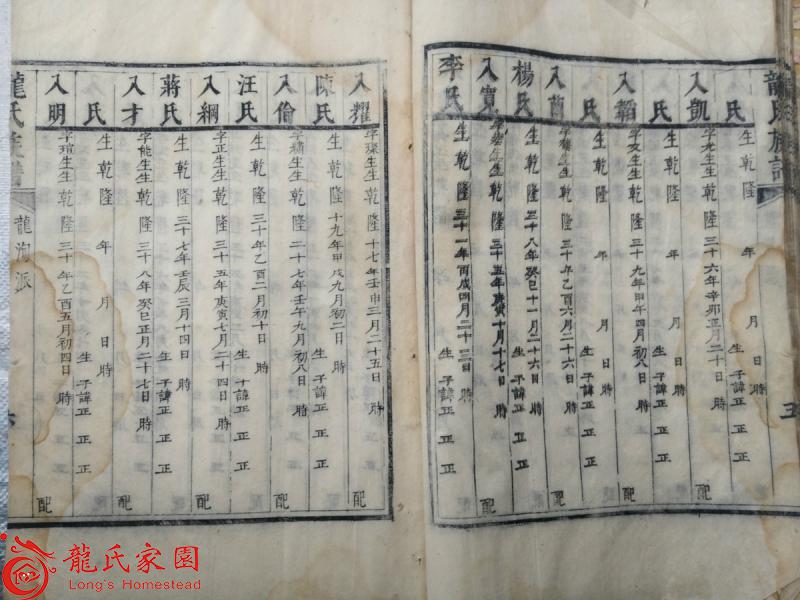 龍氏族譜 五
氏 生乾隆 年 月 日時 生子諱正正正
入凱 字光生生乾隆三十六年辛卯正月二十日 時 配
氏 生乾隆 年 月 日時 生子諱正正正
入韜 字文生生乾隆三十九年甲午四月初八 時 配
氏 生乾隆 年 月 日時 生子諱正正正
入蘭 生生乾隆三十年乙酉六月二十六日 時 配
楊氏 生乾隆三十八年癸巳十一月二十六日時 生子諱正正正
入寬 生生乾隆三十五年庚寅十月十七日 時 配
李氏 生乾隆三十一年丙戌四月二十三日 時 生子諱正正正
入耀 字 生生乾隆十七年壬申三月二十五日 時 配
陳氏 生乾隆十九年甲戌九月初二日時 生子諱正正正
入倫 字 生生乾隆二十七年壬午九月初八日 時 配
汪氏 生乾隆三十年乙酉二月初十日 時 生子諱正正正
入綱 字正生生乾隆三十五年庚寅七月二十四日時 配
蔣氏 生乾隆三十七年壬辰三月十四日時 生子諱正正正
入才 字能生生乾隆三十八年癸巳正月二十七日 時 配
氏 生乾隆 年 月 日時 生子諱正正正
入明 字瑄生生乾隆三十年乙酉五月初四日 時 配
龍氏族譜 龍洶派
龍氏家園
Long's Homestead